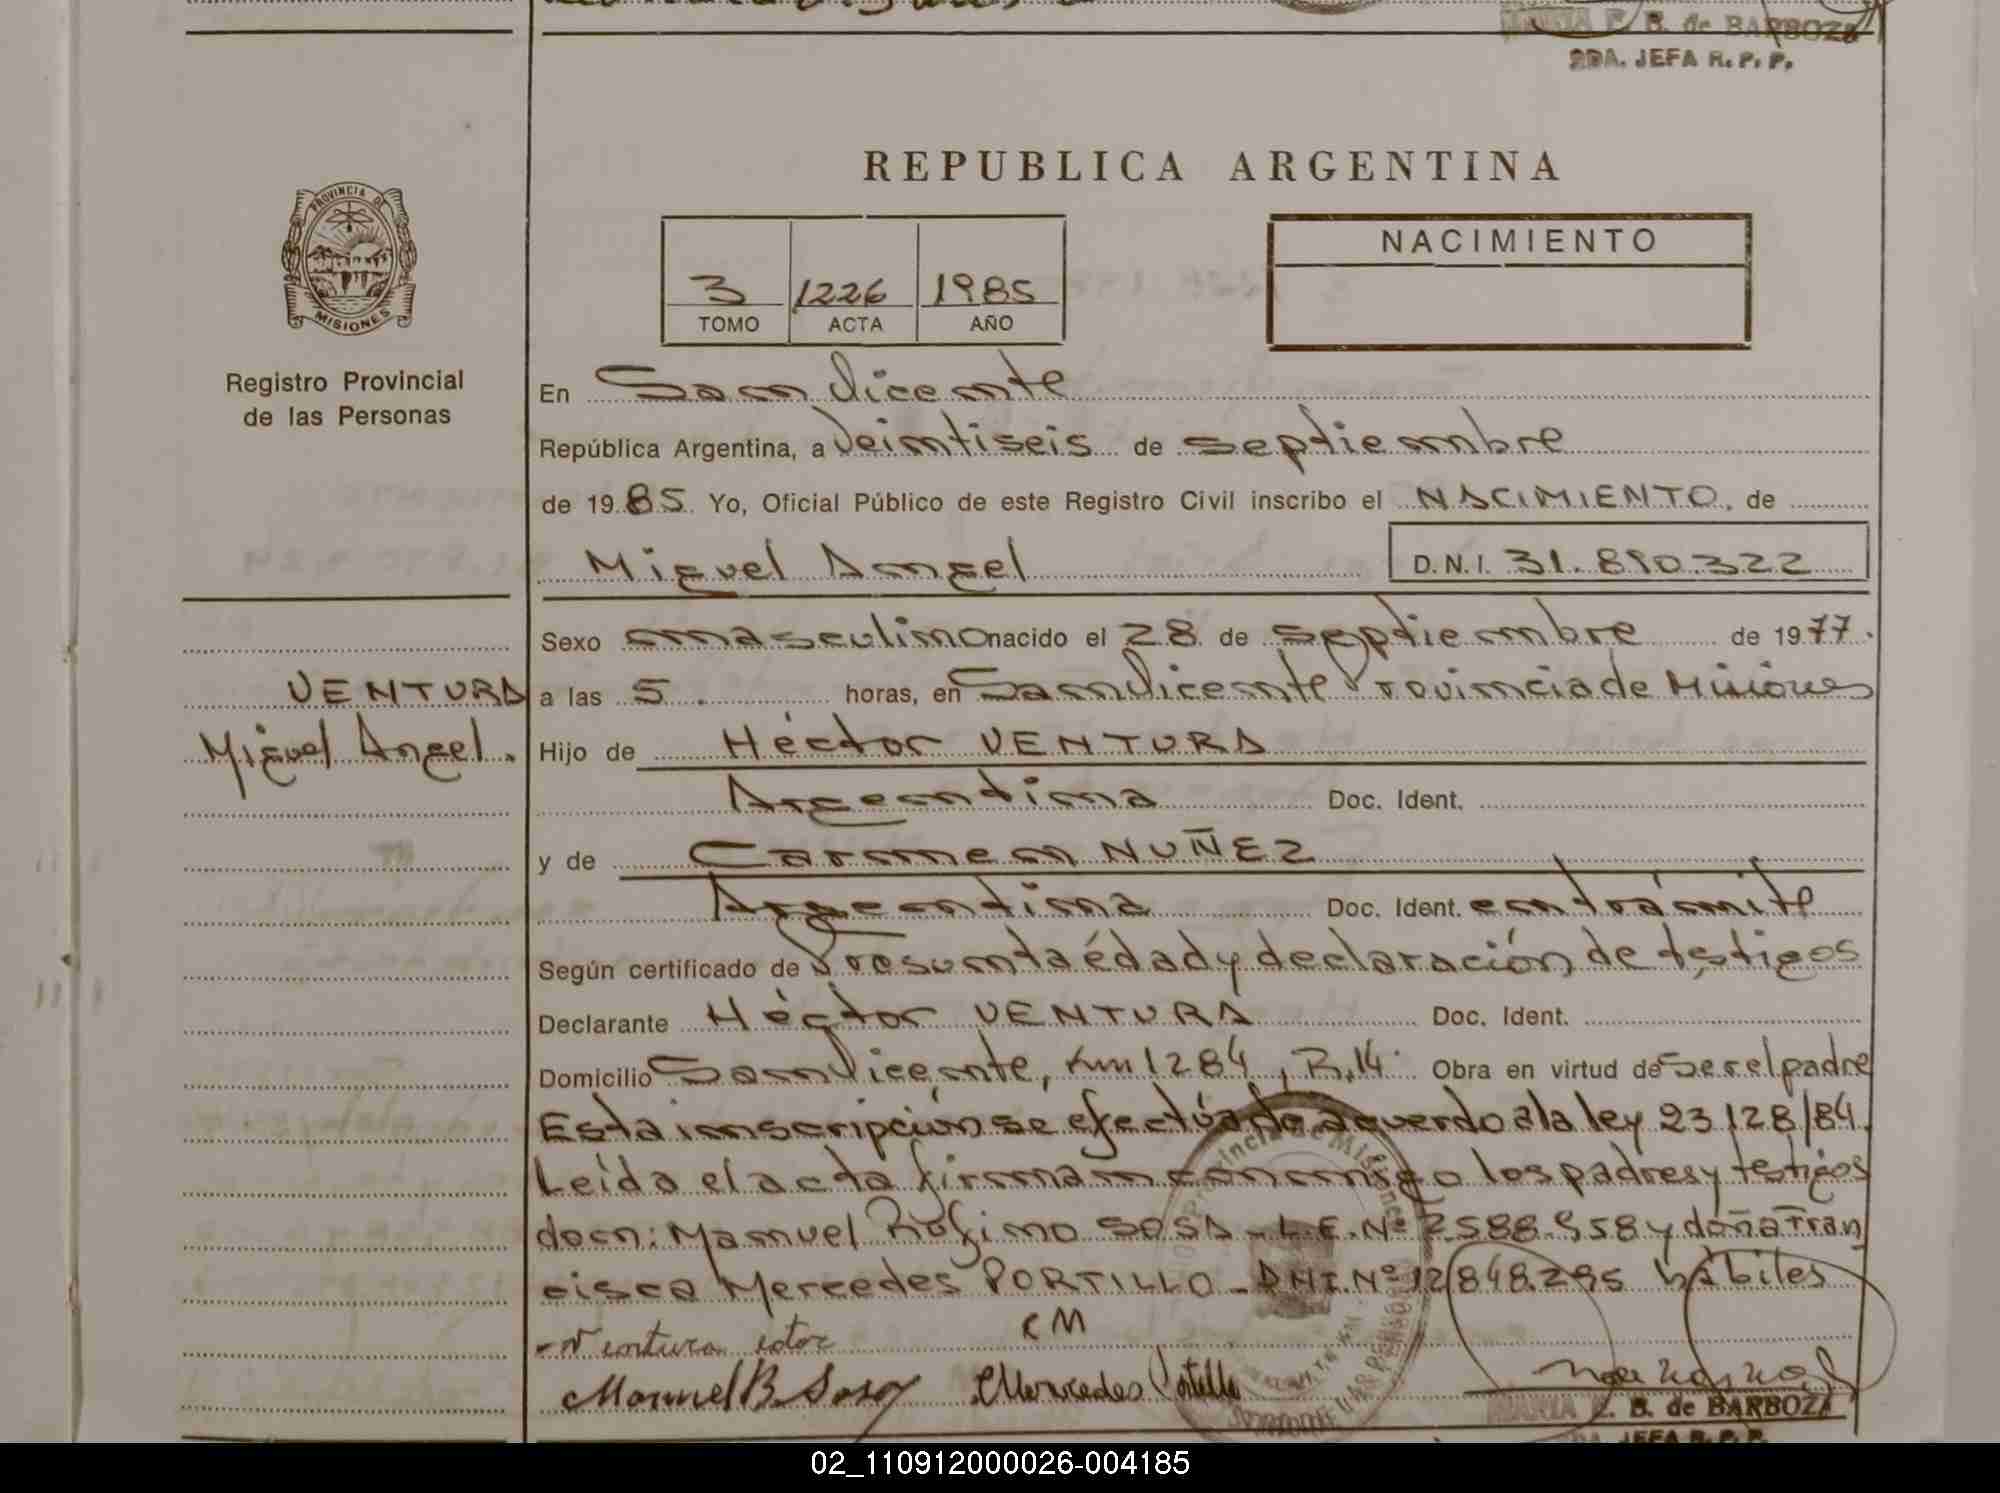 MARIA E. B. de BARBOZA
2DA. JEFA R. P. P.
REPUBLICA ARGENTINA
PROVINCIA DE
MISIONES
Registro Provincial
de las Personas
3 1226 1985
TOMO ACTA AÑO
NACIMIENTO
En San Vicente
República Argentina, a Veintiseis de septiembre
de 1985 Yo, Oficial Público de este Registro Civil inscribo el NACIMIENTO, de
Miguel Angel D.N.I. 31.890.322
Sexo masculino nacido el 28 de septiembre de 1977.
VENTURA
a las 5. horas, en San Vicente Provincia de Misiones
Miguel Angel.
Hijo de Héctor VENTURA
Argentina Doc. Ident.
y de Carmen NUÑEZ
Argentina Doc. Ident. en trámite
Según certificado de Presunta édad y declaración de testigos
Declarante Héctor VENTURA Doc. Ident.
Domicilio San Vicente, Km 1284, R.14. Obra en virtud de Ser el padre
Esta inscripción se efectúa de acuerdo a la ley 23128/84.
Leída el acta firman conmigo los padres y testigos
don: Manuel SOSA - L.E. Nº 2588.958 y doña Fran
cisca Mercedes PORTILLO - DNI. Nº 12.848.295 hábiles
-Ventura ector CM
Manuel B. Sosa Mercedes Portillo
Provincia de Misiones
MARIA E. B. de BARBOZA
2DA. JEFA R. P. P.
02_110912000026-004185